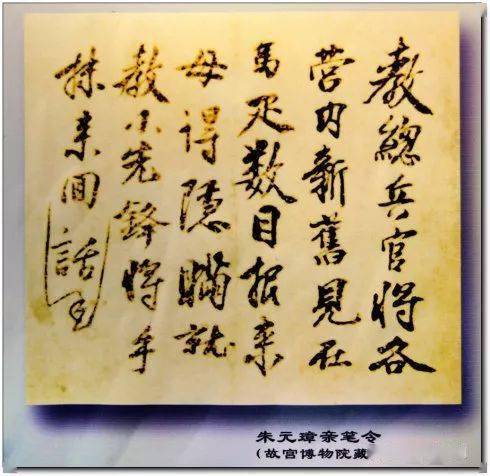 教總兵官將各
營内新舊見在
馬疋数目报来
毋得隱瞞就
教小先鋒將手
抹来囬話
朱元璋亲笔令
(故宫博物院藏